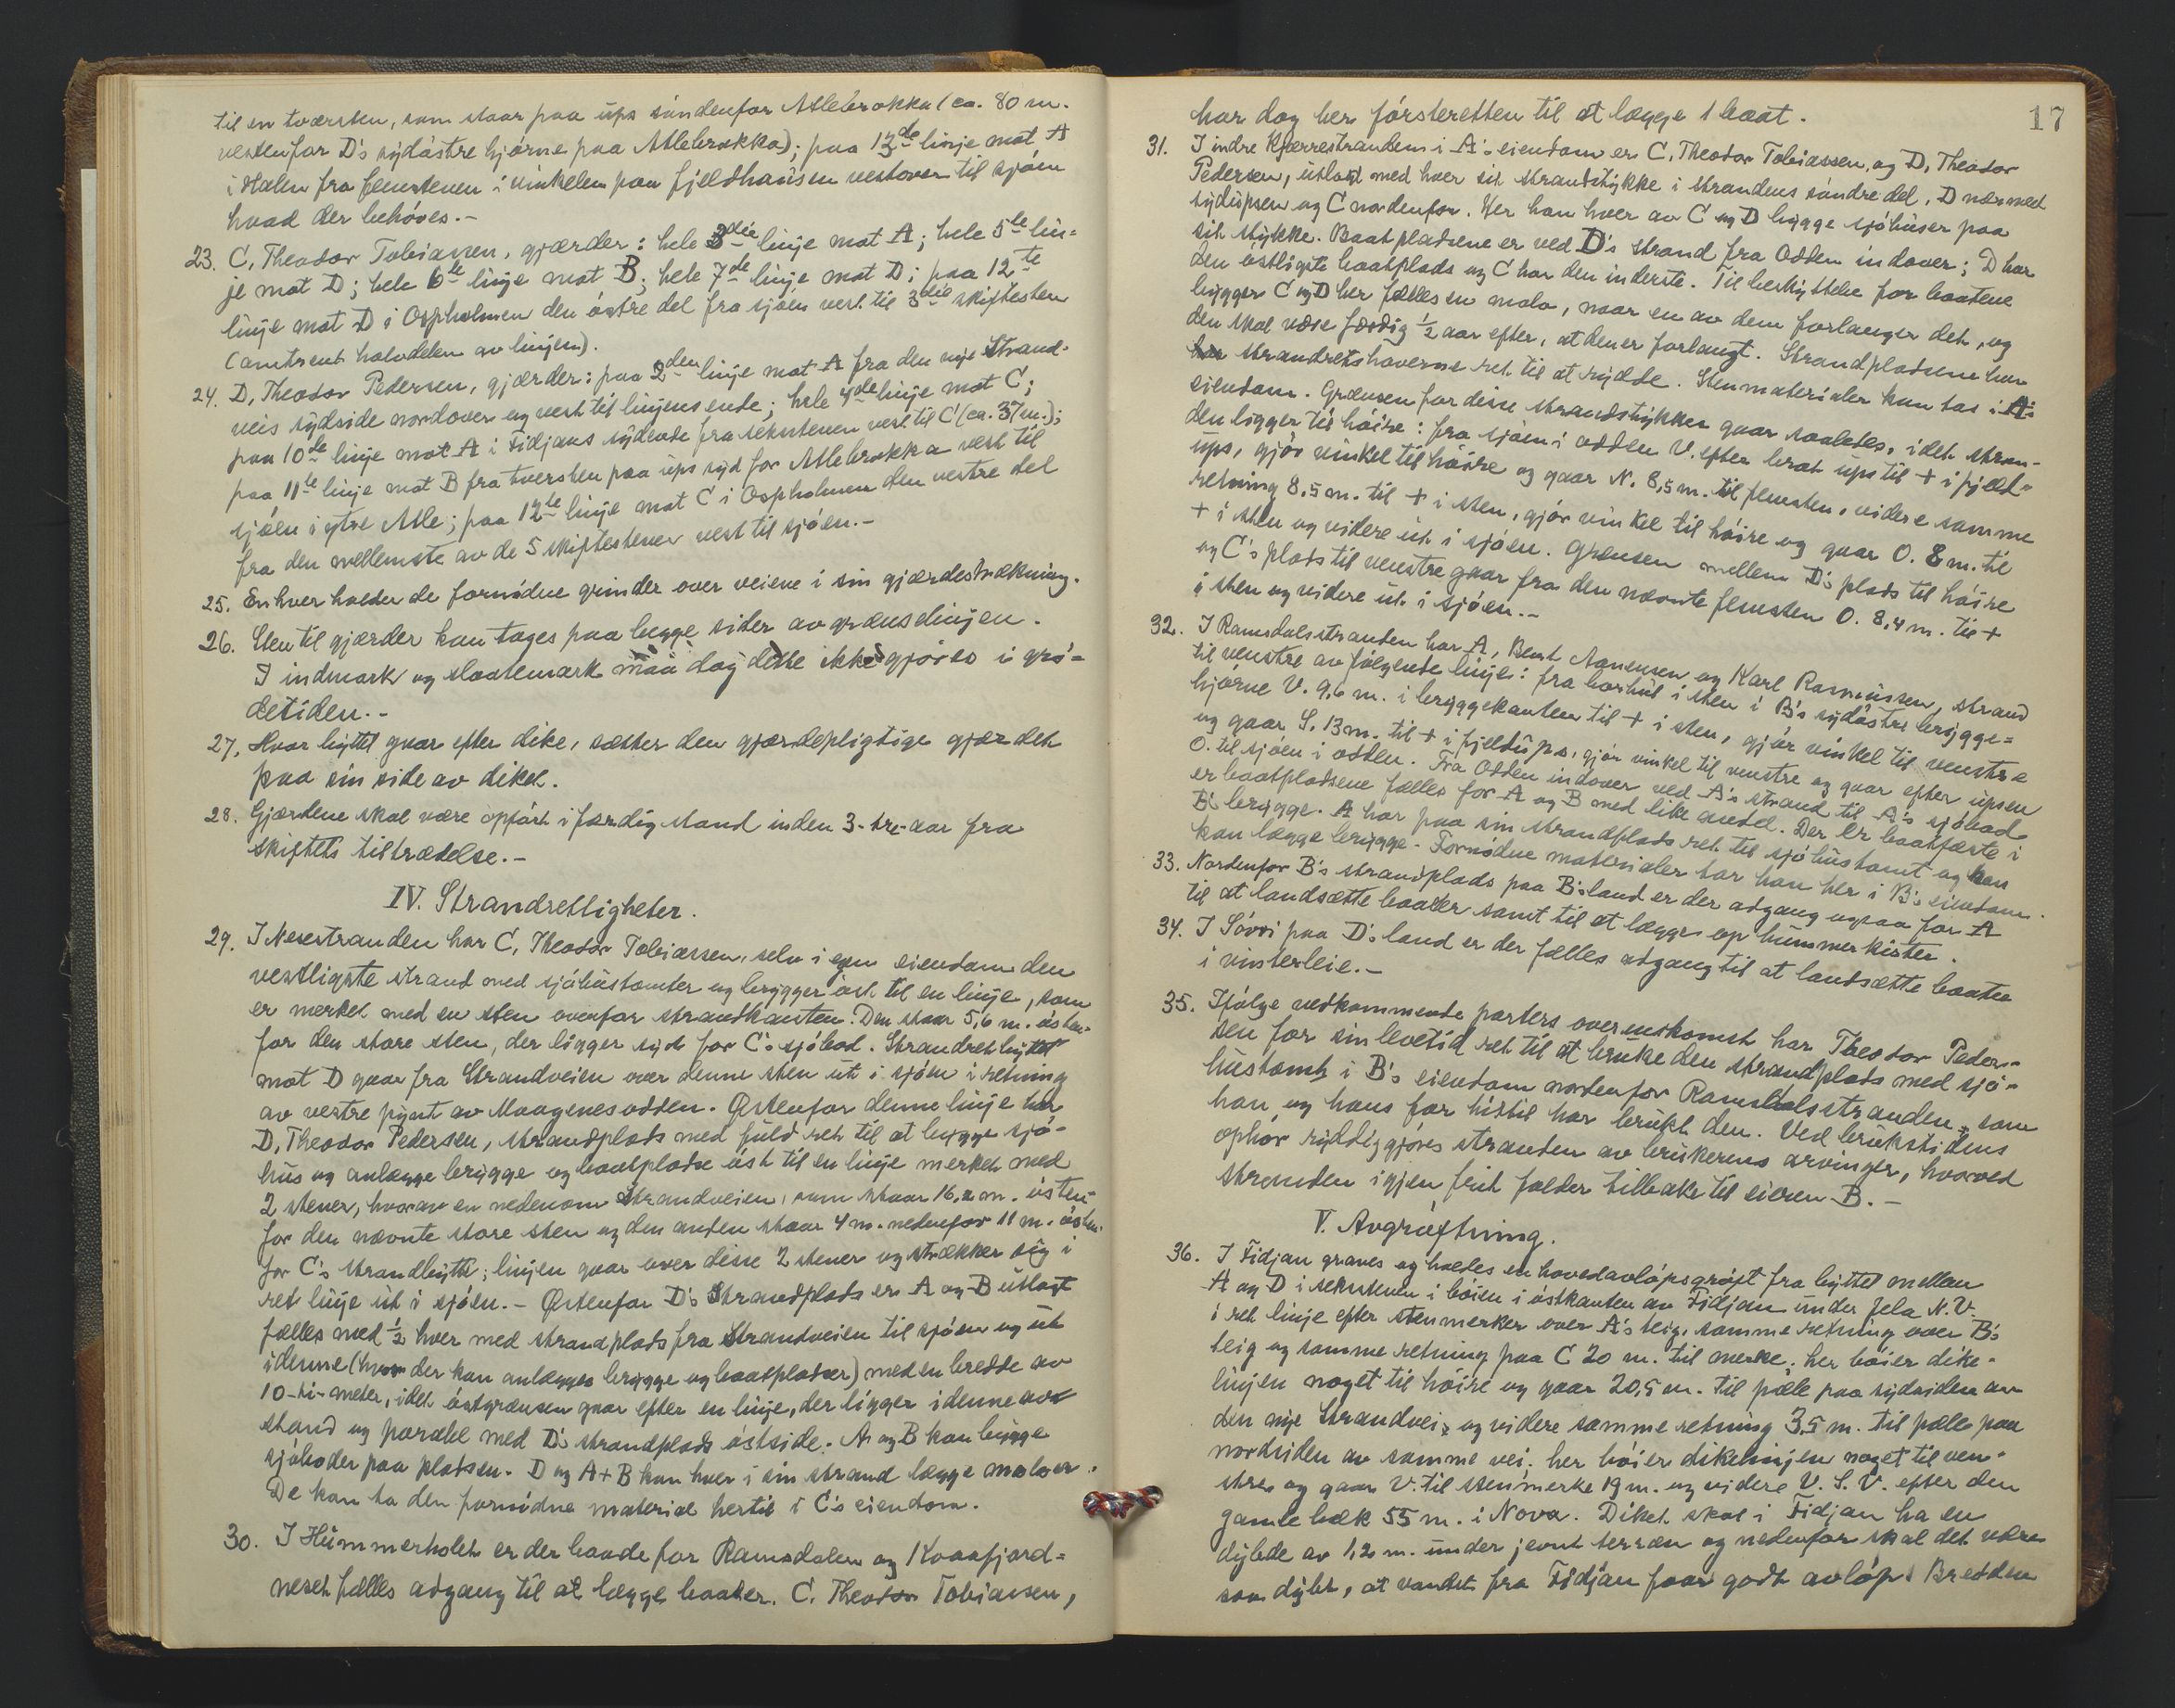 til en tværsten, som staar paa ups søndenfor Atlebrokka (ca. 80 m.
vestenfor D's sydøstre hjørne paa Atlebrokka); paa 13de linje mot A
i Holen fra femstenen i vinkelen paa fjeldhausen vestover til sjøen
hvad der behøves.-
23. C, Theodor Tobiassen, gjærder: hele 3die linje mot A; hele 5te lin=
je mot D; hele 6te linje mot B; hele 7de linje mot D; paa 12te
linje mot D i Ospholmen den østre del fra sjøen vest til 3die skiftesten
(omtrent halvdelen av linjen).
24. D, Theodor Pedersen, gjærder: paa 2den linje mot A fra den nye Strand-
veis sydside nordover og vest til linjens ende; hele 4de linje mot C;
paa 10de linje mot A i Fidjans sydende fra seksstenen vest til C (ca. 37 m.);
paa 11te linje mot B fra tversten paa ups syd for Atlebrokka vest til
sjøen i ytre Atle; paa 12te linje mot C i Ospholmen den vestre del
fra den mellemste av de 5 skiftestener vest til sjøen.-
25. Enhver holder de fornødne grinder over veiene i sin gjærdestrækning.
26. Sten til gjærder kan tages paa begge sider av grænselinjen.
I indmark og slaattemark maa dog dette ikke gjøres i grø=
detiden.-
27. Hvor byttet gaar efter dike, sætter den gjærdepligtige gjærdet
paa sin side av diket.
28. Gjærdene skal være opført i færdig stand inden 3-tre-aar fra
skiftets tiltrædelse.-
IV. Strandrettigheter.
29. I Nesestranden har C, Theodor Tobiassen, selv i egen eiendom den
vestligste strand med sjøhustomter og brygger øst til en linje, som
er merket med en sten ovenfor strandkanten. Den staar 5,6 m. østen-
for den store sten, der ligger syd for C's sjøbod. Strandretbyttet
mot D gaar fra Strandveien over denne sten ut i sjøen i retning
av vestre pynt av Maagenesodden. Østenfor denne linje har
D, Theodor Pedersen, strandplads med fuld ret til at bygge sjø-
hus og anlægge brygge og baatplads øst til en linje merket med
2 stener, hvorav en nedenom Strandveien, som staar 16,2 m. østen-
for den nævnte store sten og den anden staar 4 m. nedenfor 11 m. østen-
for C's strandbytte; linjen gaar over disse 2 stener og strækker sig i
ret linje ut i sjøen.- Østenfor D's Strandplads er A og B utlagt
fælles med ½ hver med strandplads fra Strandveien til sjøen og ut
i denne (hvor der kan anlægges brygge og baatpladser) med en bredde av
10-ti-meter, idet østgrænsen gaar efter en linje, der ligger i denne av-
stand og parallel med D's strandplads østside. A og B kan bygge
sjøboder paa pladsen. D og A+B kan hver i sin strand lægge moloer.
De kan ta den fornødne material hertil i C's eiendom.
30. I Hummerholet er der baade for Ramsdalen og Kvaafjord=
neset fælles adgang til at lægge baater. C. Theodor Tobiassen,
17
har dog her førsteretten til at lægge 1 baat.
31. I indre Kjærrestranden i A's eiendom er C, Theodor Tobiassen, og D, Theodor
Pedersen, utlagt med hver sit strandstykke i strandens søndre del, D nærmest
sydupsen og C nordenfor. Her kan hver av C og D bygge sjøhuser paa
sit stykke. Baatpladsene er ved D's strand fra Odden indover; D har
den østligste baatplads og C har den inderste. Til beskyttelse for baatene
bygger C og D her fælles en molo, naar en av dem forlanger det, og
den skal være færdig ½ aar efter, at den er forlangt. Strandpladsene har
strandretshaverne ret til at rydde. Stenmaterialer kan tas i A's
eiendom. Grænsen for disse strandstykker gaar saaledes, idet stran-
den ligger til høire: fra sjøen i odden V. efter brat ups til + i fjæld-
ups, gjør vinkel til høire og gaar N. 8,5 m. til femsten, videre samme
retning 8,5 m. til + i sten, gjør vinkel til høire og gaar O. 8 m. til
+ i sten og videre ut i sjøen. Grænsen mellem D's plads til høire
og C's plads til venstre gaar fra den nævnte femsten O. 8,4 m. til +
i sten og videre ut i sjøen.-
32. I Ramsdalsstranden har A, Bent Aanensen og Karl Rasmussen, strand
til venstre av følgende linje: fra borhul i sten i B's sydøstre brygge=
hjørne V. 9,6 m. i bryggekanten til + i sten, gjør vinkel til venstre
og gaar S. 13 m. til + i fjeldups, gjør vinkel til venstre og gaar efter upsen
O. til sjøen i odden. Fra Odden indover ved A's strand til A's sjøbod
er baatpladsene fælles for A og B med like andel. Der er baatfæste i
B's brygge. A har paa sin strandplads ret til sjøhustomt og han
kan lægge brygge. Fornødne materialer tar han her i B's eiendom.
33. Nordenfor B's strandplads paa B's land er der adgang ogsaa for A
til at landsætte baater samt til at lægge op hummerkister.
34. I Søvri paa D's land er der fælles adgang til at landsætte baater
i vinterleie.-
35. Ifølge vedkommende parters overenskomst har Theodor Peder-
sen for sin levetid ret til at bruke den strandplads med sjø-
hustomt i B's eiendom nordenfor Ramsdalsstranden, som
han og hans far hittil har brukt den. Ved brukstidens
ophør ryddiggjøres stranden av brukerens arvinger, hvorved
stranden igjen frit falder tilbake til eieren B.-
V. Avgrøftning.
36. I Fidjan graves og holdes en hovedavløpsgrøft fra byttet mellem
A og D i seksstenen i bøien i østkanten av Fidjan under fela N.V.
i ret linje efter stenmerker over A's teig, samme retning over B's
teig og samme retning paa C 20 m. til merke; her bøier dike-
linjen noget til høire og gaar 20,5 m. til pæle paa sydsiden av
den nye Strandvei, og videre samme retning 3,5 m. til pæle paa
nordsiden av samme vei; her bøier dikelinjen noget til ven-
stre og gaar V. til stenmerke 19 m. og videre V. S. V. efter den
gamle bæk 55 m. i Nova. Diket skal i Fidjan ha en
dybde av 1,2 m. under jevnt terræn og nedenfor skal det være
saa dybt, at vandet fra Fidjan faar godt avløp. Bredden